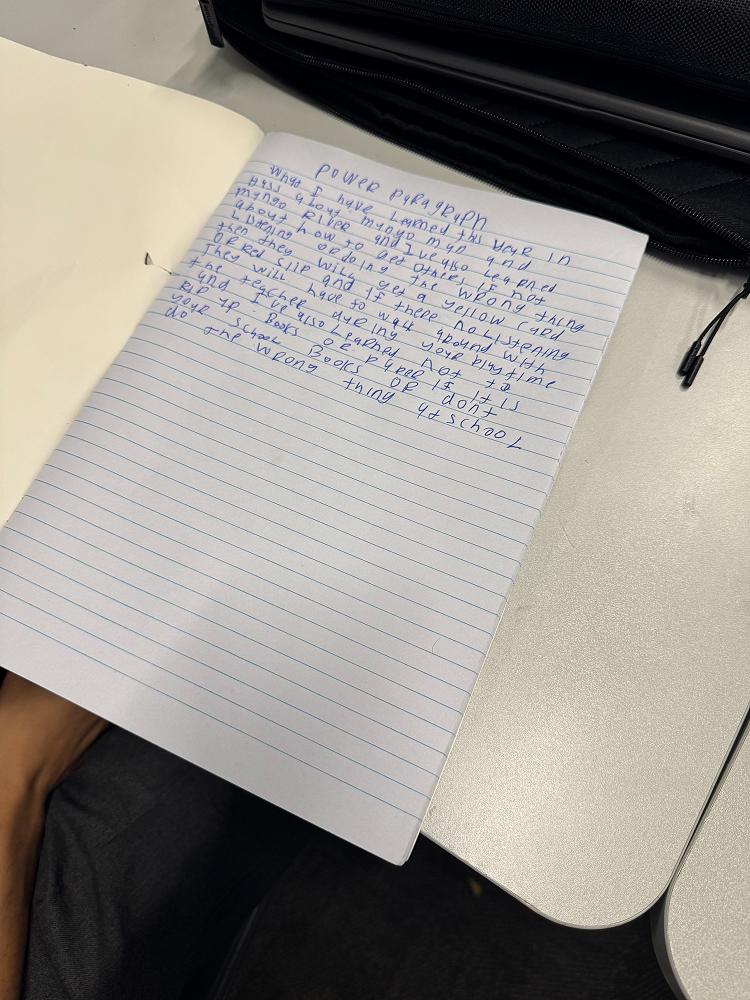 power paragraph
What I have Learned this year in
Hass about mungo man and
mungo River and I've also Learned
about how to get others if not
Listening or doing the wrong thing
then they will get a yellow card
OR Red slip and if there no Listening
They will have to walk around with
the teacher during your playtime
and I've also Learned not to
Rip up. Books or paper if it is
your school Books OR dont
do the wrong thing at school